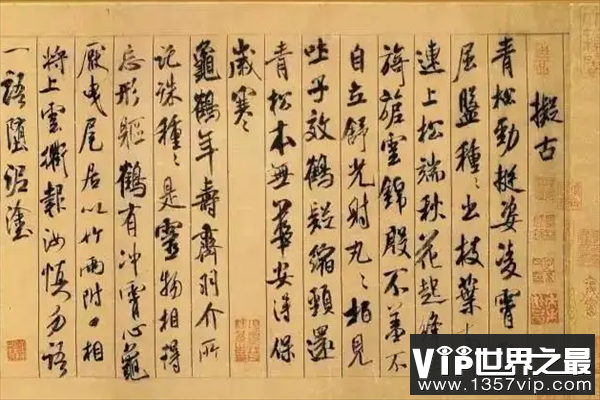 擬古
青松勁挺姿凌霄
屈盤種〻出枝葉
連上松端秋花起絳
旖旎雲錦殷不羞不
自立舒光射丸〻柏見
吐子效鶴疑縮頸還
青松本無華安得保
歲寒〻
龜鶴年壽齊羽介所
託殊種〻是靈物相得
忘形軀鶴有冲霄心龜
厭曳尾居以竹兩附口相
將上雲衢報汝慎勿語
一語墮泥塗
VIP世界之最
www.1357vip.com